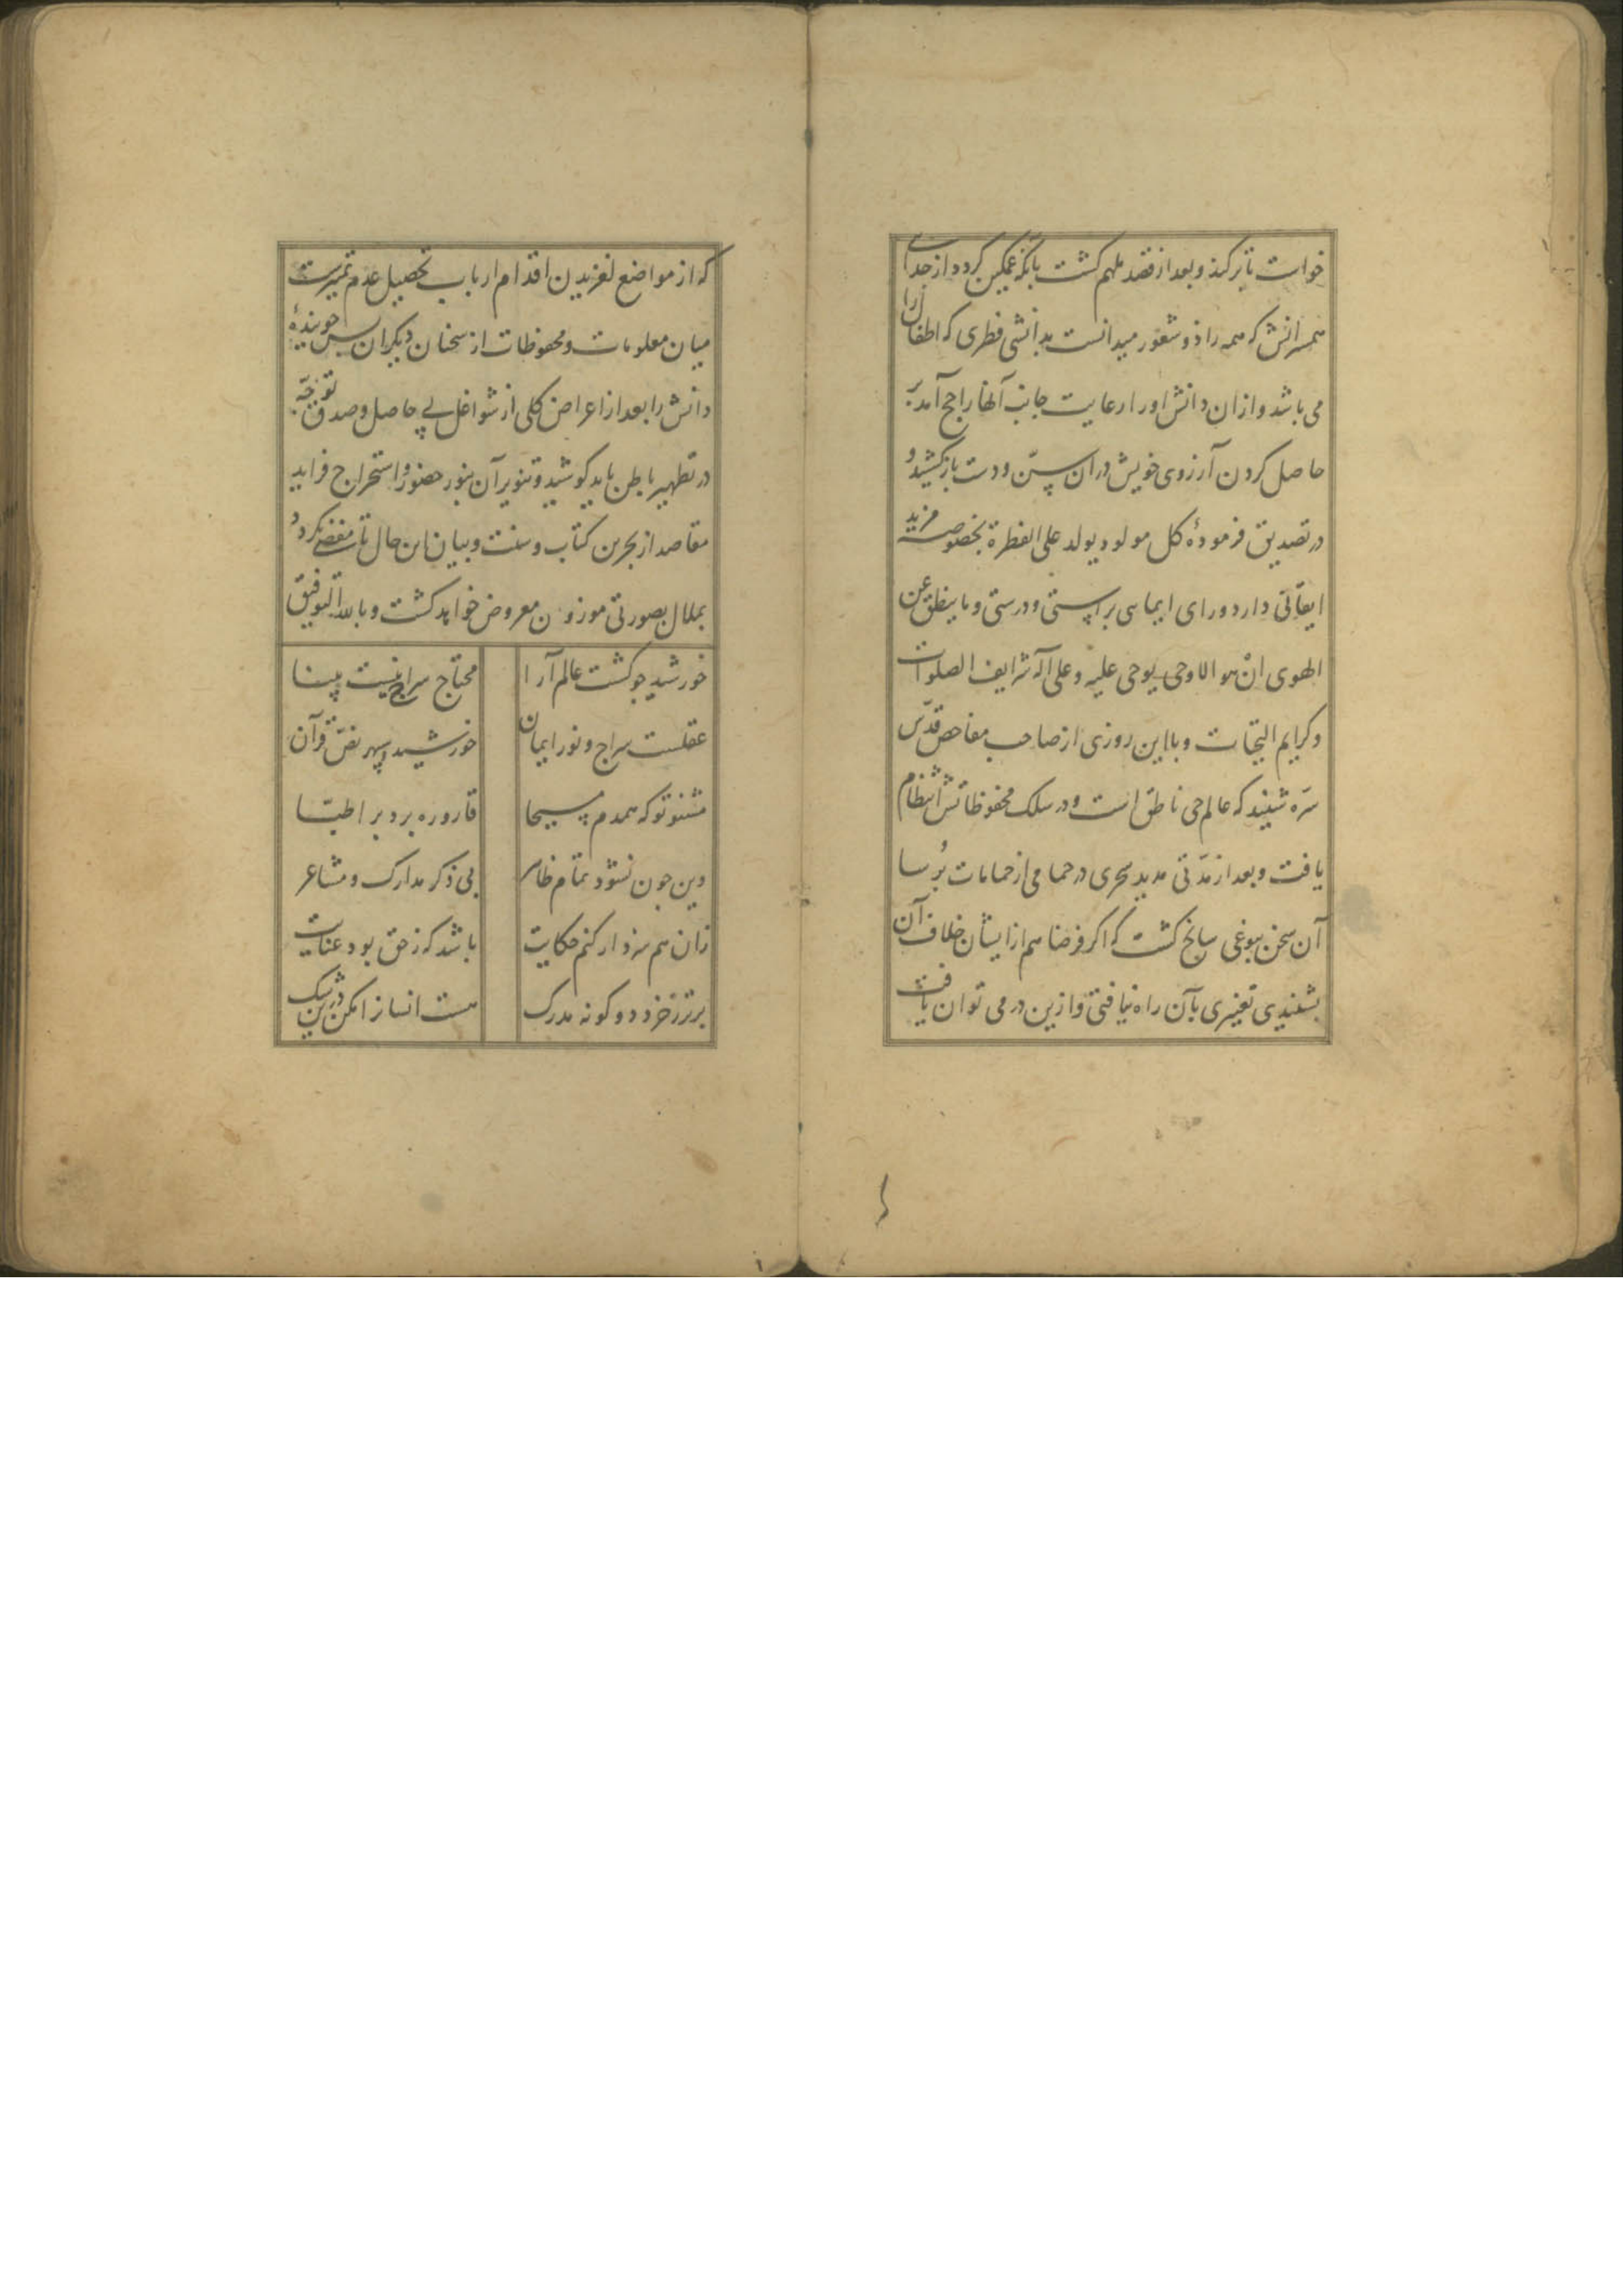 خواست تا بر کند و بعد از قصد ملهم کشت بآنکه غمکین کردد از جدایی
همسرانش که همه را ذو شعور میدانست بدانشی فطری که اطفال را
می باشد و از ان دانش او را رعایت جانب آنها راجح آمد بر
حاصل کردن آرزوی خویش در ان سن و دست باز کشید و
در تصدیق فرمودهٔ کل مولود یولد علی الفطرة بخصوصه مزید
ایقانی دارد ورای ایما سی براستی و درستی و ما ینطق عن
الهوی ان هو الا وحی یوحی علیه و علی آله شرایف الصلوات
و کرایم التحیات و با این روزی از صاحب مفاحص قدس
سره شنید که عالم حی ناطق است و در سلک محفوظاتش انتظام
یافت و بعد از مدتی مدید سحری در حمامی از حمامات بُرسا
آن سخن بنوعی سانح کشت که اکر فرضا هم از ایشان خلاف آن
بشنیدی تغییری بآن راه نیافتی و ازین در می توان یافت
که از مواضع لغزیدن اقدام ارباب تحصیل عدم تمیزست
میان معلومات و محفوظات از سخنان دیکران پس جویندهٔ
دانش را بعد از اعراض کلی از شواغل بی حاصل و صدق توجه
در تطهیر باطن باید کوشید و تنویر آن بنور حضور و استخراج فراید
مقاصد از بحرین کتاب و سنت و بیان این حال تا مفضی نکردد
بملال بصورتی موزون معروض خواهد کشت و بالله التوفیق
خورشید جو کشت عالم آرا محتاج سراج نیست بینا
عقلست سراج و نور ایمان خورشید سپهر نص قرآن
مشنو تو که همدم مسیحا قاروره برد بر اطبا
وین جون نشود تمام ظاهر بی ذکر مدارک و مشاعر
زان هم سزد ار کنم حکایت باشد که زحق بود عنایت
برتر زخرد دو کونه مدرک هست انسانرا